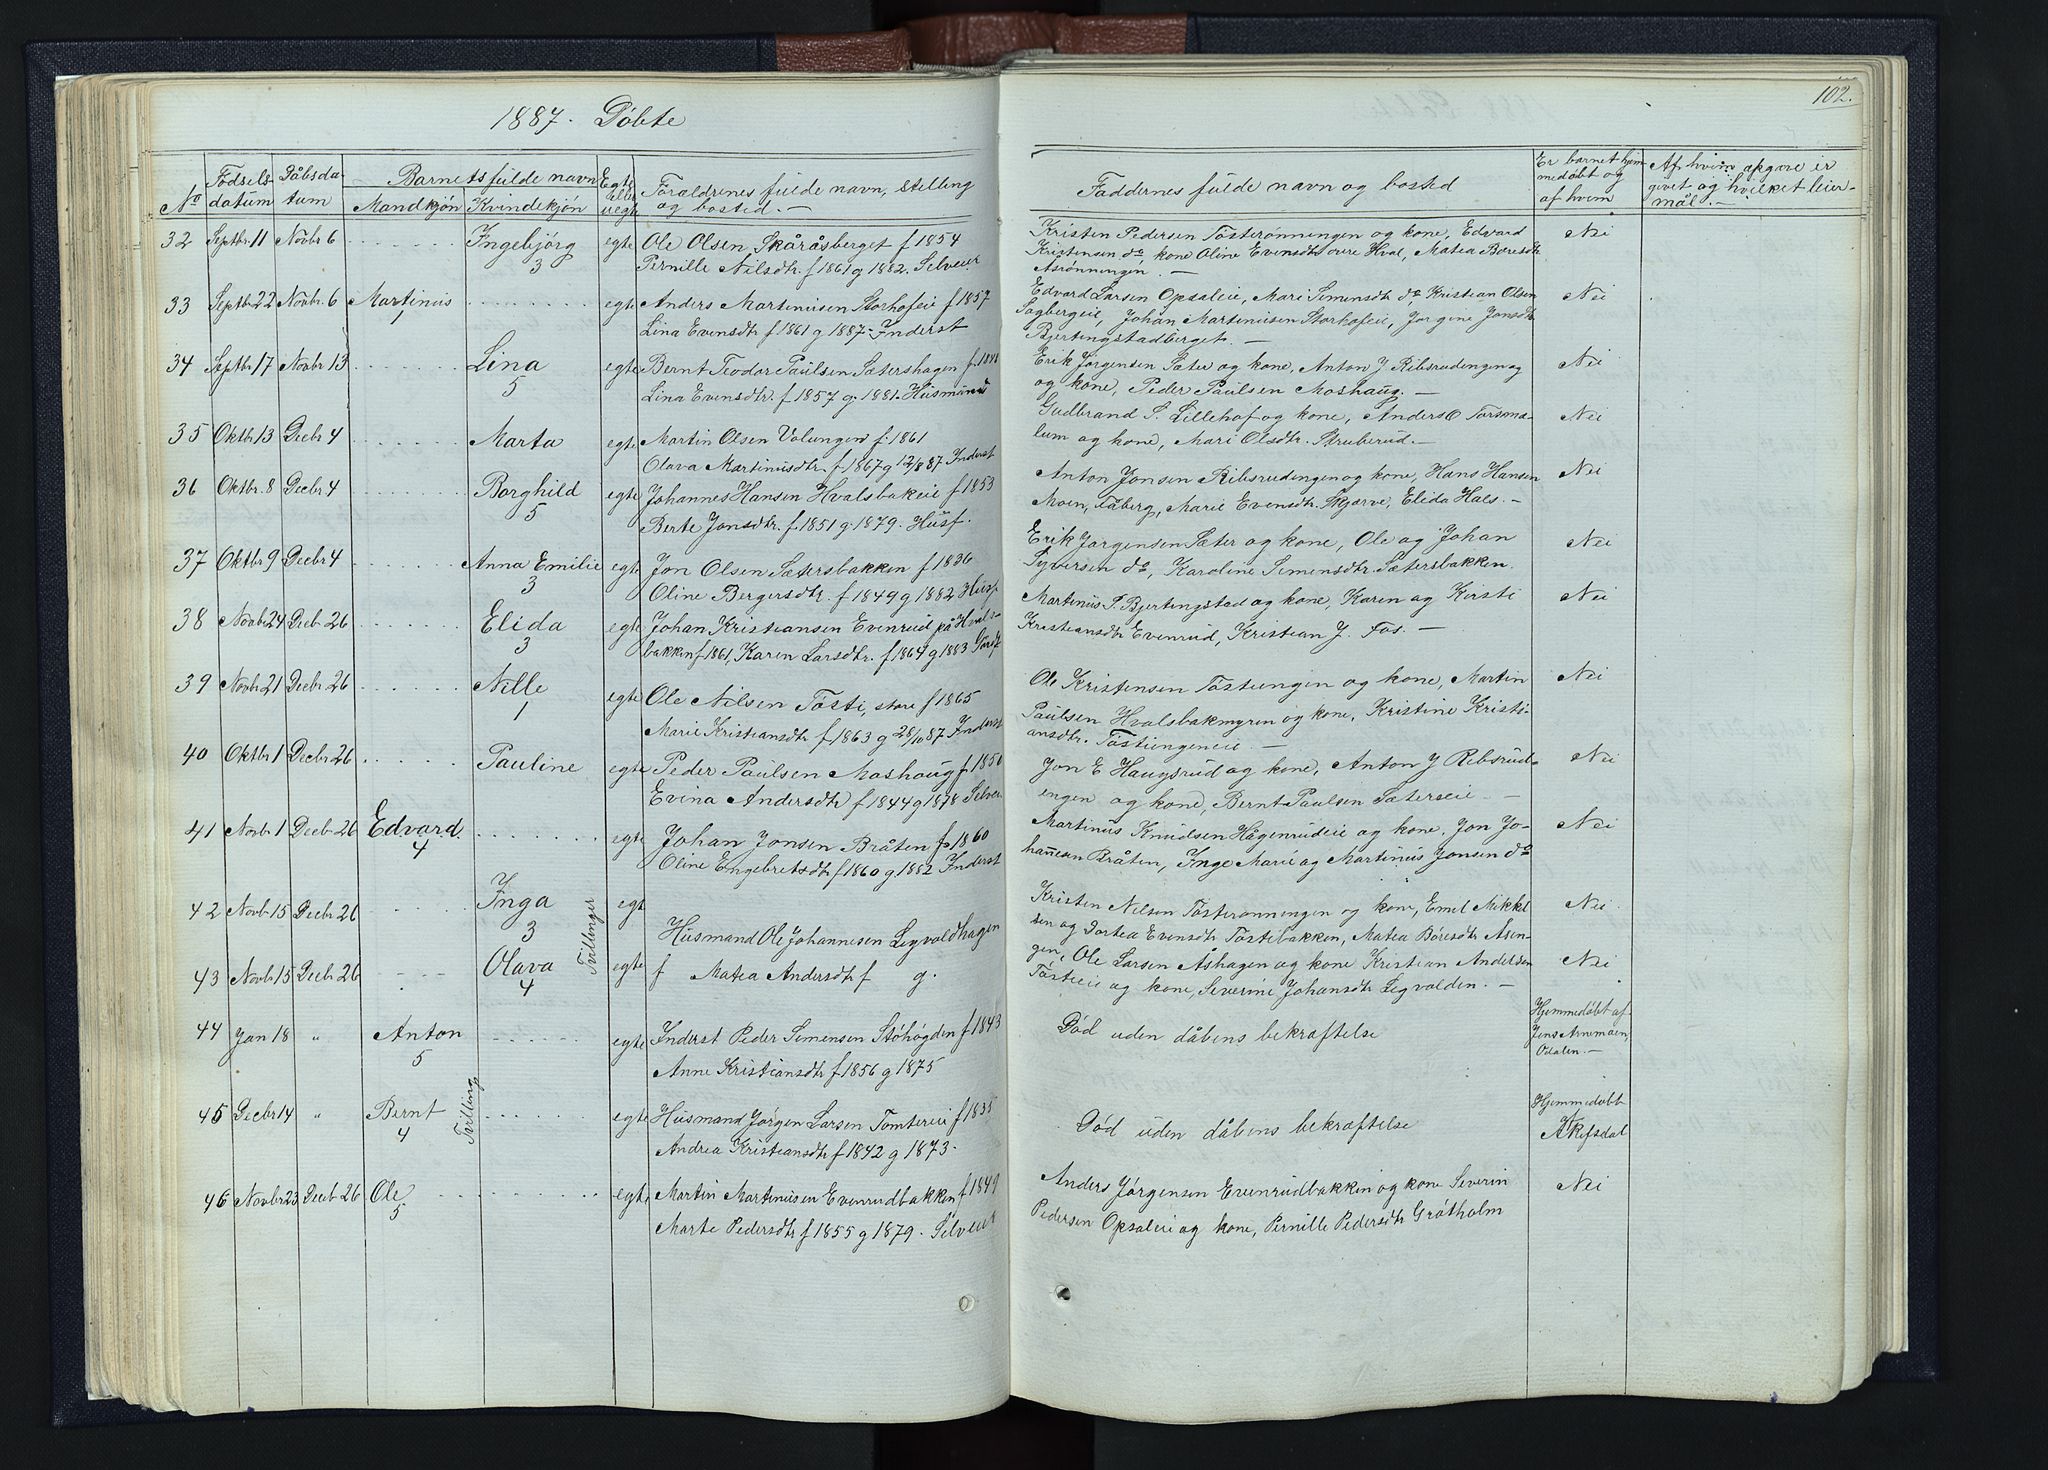 1887. Döbte
102.
No
Födsels-
datum
Dåbsda-
tum
Barnets fulde navn
Mandkjön Kvindekjön
Egte
eller
uegte
Foraldrenes fulde navn, stilling
og bosted. —
Faddernes fulde navn og bosted
Er barnet hjem
medöbt og
af hvem
Af hvem opgave er
givet og hvilket leier-
mål. —
32 Septbr. 11 Novbr 6 Ingebjörg egte Ole Olsen Skåråsberget f 1854
3 Pernille Nilsdtr. f 1861 g 1882. Selveier
Kristen Pedersen Tösterönningen og kone, Edvard Nei
Kristensen do kone Oline Evensdtr övre Hval, Matea Boresdtr
Asrönningen. —
33 Septbr. 22 Novbr. 6 Martinus egte Anders Martinusen Storhofeie f 1857
1 Lina Evensdtr f 1861 g 1887. Inderst
Edvard Larsen Opsaleie, Mari Simensdtr do, Kristian Olsen Nei
Sagbergeie, Johan Martinusen Storhofeie, Jorgine Jonsdtr
Bjertingstadberget. —
34 Septbr. 17 Novbr 13 Lina egte Bernt Teodor Paulsen Sætershagen f 1848
5 Lina Evensdtr. f 1857 g. 1881. Husmand
Erik Jörgensen Sæter og kone, Anton J Ribsrudengen og Nei
og kone, Peder Paulsen Moshaug. —
35 Oktbr. 13 Decbr 4 Marta egte Martin Olsen Volungen f. 1861
Olava Martinusdtr. f 1867 g 12/8 87 Inderst
Gudbrand P. Lillehof og kone, Anders O Torsma- Nei
lum og kone, Mari Olsdtr. Struberud. —
36 Oktbr. 8 Decbr 4 Borghild egte Johannes Hansen Hvalsbakeie f 1853
5 Berte Jonsdtr. f. 1851 g. 1879. Husf.
Anton Jonsen Ribsrudengen og kone, Hans Hansen Nei
Moen, Fåberg, Marie Evensdtr. Skjærve, Elida Hals. —
37 Oktbr 9 Decbr 4 Anna Emilie egte Jon Olsen Sætersbakken f 1836
3 Oline Bergersdtr. f 1849 g 1882 Husf
Erik Jörgensen Sæter og kone, Ole og Johan Nei
Syversen do, Karoline Simensdtr. Sætersbakken.
38 Novbr 24 Decb 26 Elida egte Johan Kristiansen Evenrud på Hvals-
3 bakken f 1861, Karen Larsdtr. f 1864 g 1883
Martinus P. Bjertingstad og kone, Karen og Kirsti Nei
Kristiansdtr Evenrud, Kristian J. Fos. —
39 Novbr 21 Decbr 26 Nille egte Ole Nilsen Tösti, store f 1865
1 Marie Kristiansdtr f 1863 g 28/10 87 Inderst
Ole Kristensen Töstiengen og kone, Martin Nei
Paulsen Hvalsbakmyren og kone, Kristine Kristi-
ansdtr. Töstiengeneie. —
40 Oktbr 1 Decbr 26 Pauline egte Peder Paulsen Moshaug f 1850
Evina Andersdtr f 1844 g 1878 Selvei
Jon E Haugsrud og kone, Anton J Ribsrud- Nei
engen og kone, Bernt Paulsen Sæterseie. —
41 Novbr 1 Decbr 26 Edvard. egte Johan Jonsen Bråten f 1860
4 Oline Engebretsdtr f 1860 g 1882 Inderst
Martinus Knudsen Hågenrudeie og kone, Jon Jo- Nei
hannesen Bråten, Inge Marie og Martinus Jonsen do
42 Novb 15 Decbr 26 Inga egt
3
Tvillinger
Husmand Ole Johannesen Ligvoldhagen
Kristen Nilsen Tösterönningen og kone, Emil Mikkel Nei
sen og Dortea Evensdtr Töstibakken, Matea Böresdtr Asen-
43 Novbr 15 Decbr 26 Olava egte f Matea Andersdtr f g.
4
gen, Ole Larsen Åshagen og kone Kristian Andersen Nei
Töstieie og kone, Severine Johansdtr Ligvolden. —
44 Jan 18 " Anton egte Inderst Peder Simensen Stöhögden f 1843
5 Anne Kristiansdtr f 1856 g 1875
Död uden dåbens bekræftelse
Hjemmedöbt af
Jens Arnemoen,
Odalen. —
45 Decbr 14 " Bernt egte Husmand Jörgen Larsen Tomtereie f 1835
4 Tvilling Andrea Kristiansdtr f 1842 g 1873.
Död uden dåbens bekræftelse
Hjemmedöbt
A Refsdal
46 Novbr 23 Decb 26 Ole egte Martin Martinusen Evenrudbakken f 1849
5 Marte Pedersdtr f 1855 g 1879. Selveier
Anders Jörgensen Evenrudbakken og kone Severin Nei
Pedersen Opsaleie og kone, Pernille Pedersdtr Gråtholm